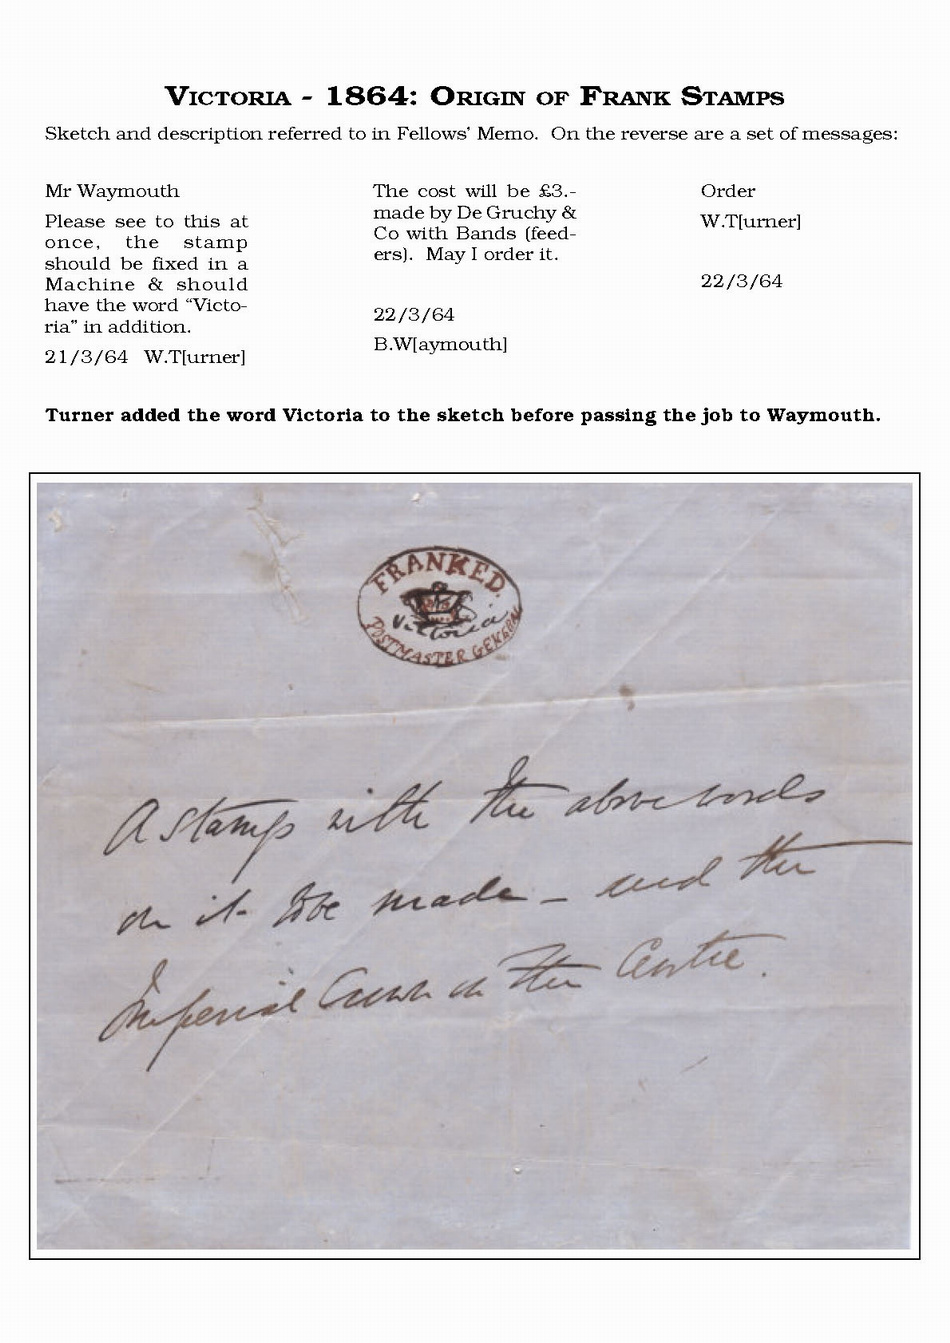 VICTORIA - 1864: ORIGIN OF FRANK STAMPS
Sketch and description referred to in Fellows' Memo. On the reverse are a set of messages:
Mr Waymouth
Please see to this at
once, the stamp
should be fixed in a
Machine & should
have the word “Victo-
ria” in addition.
21/3/64 W.T[urner]
The cost will be £3.-
made by De Gruchy &
Co with Bands (feed-
ers). May I order it.
22/3/64
B.W[aymouth]
Order
W.T[urner]
22/3/64
Turner added the word Victoria to the sketch before passing the job to Waymouth.
FRANKED.
Victoria
POSTMASTER GENERAL
A stamp with the above words
on it to be made - and the
Imperial Crown in the Centre.